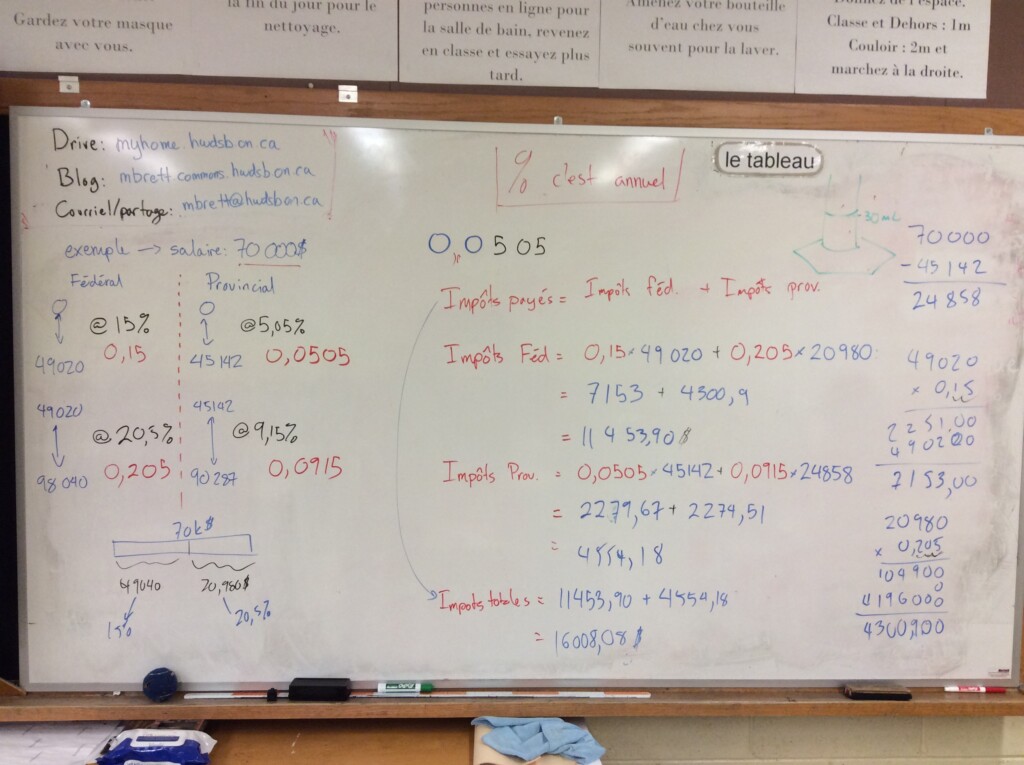 Gardez votre masque
avec vous.
la fin du jour pour le
nettoyage.
personnes en ligne pour
la salle de bain, revenez
en classe et essayez plus
tard.
Amenez votre bouteille
d'eau chez vous
souvent pour la laver.
Donnez de l'espace.
Classe et Dehors : 1m
Couloir : 2m et
marchez à la droite.
Drive: myhome.hwdsb.on.ca
Blog: mbrett.commons.hwdsb.on.ca
Courriel/partage: mbrett@hwdsb.on.ca
% c'est annuel
le tableau
30mL
exemple → salaire: 70 000$
Fédéral
0
@ 15%
49020
0,15
49020
@ 20,5%
98040
0,205
Provincial
0
@5,05%
45142
0,0505
45142
@ 9,15%
90287
0,0915
70k$
49040
20,980$
15%
20,5%
0,0505
Impôts payés = Impôts féd. + Impôts prov.
Impôts Féd = 0,15×49020 + 0,205×20980
= 7153 + 4300,9
= 11453,90$
Impôts Prov. = 0,0505×45142 + 0,0915×24858
= 2279,67 + 2274,51
= 4554,18
Impots totales = 11453,90 + 4554,18
= 16008,08$
70000
- 45142
24858
49020
× 0,15
2251,00
490200
7153,00
20980
× 0,205
104900
0
4196000
4300,900